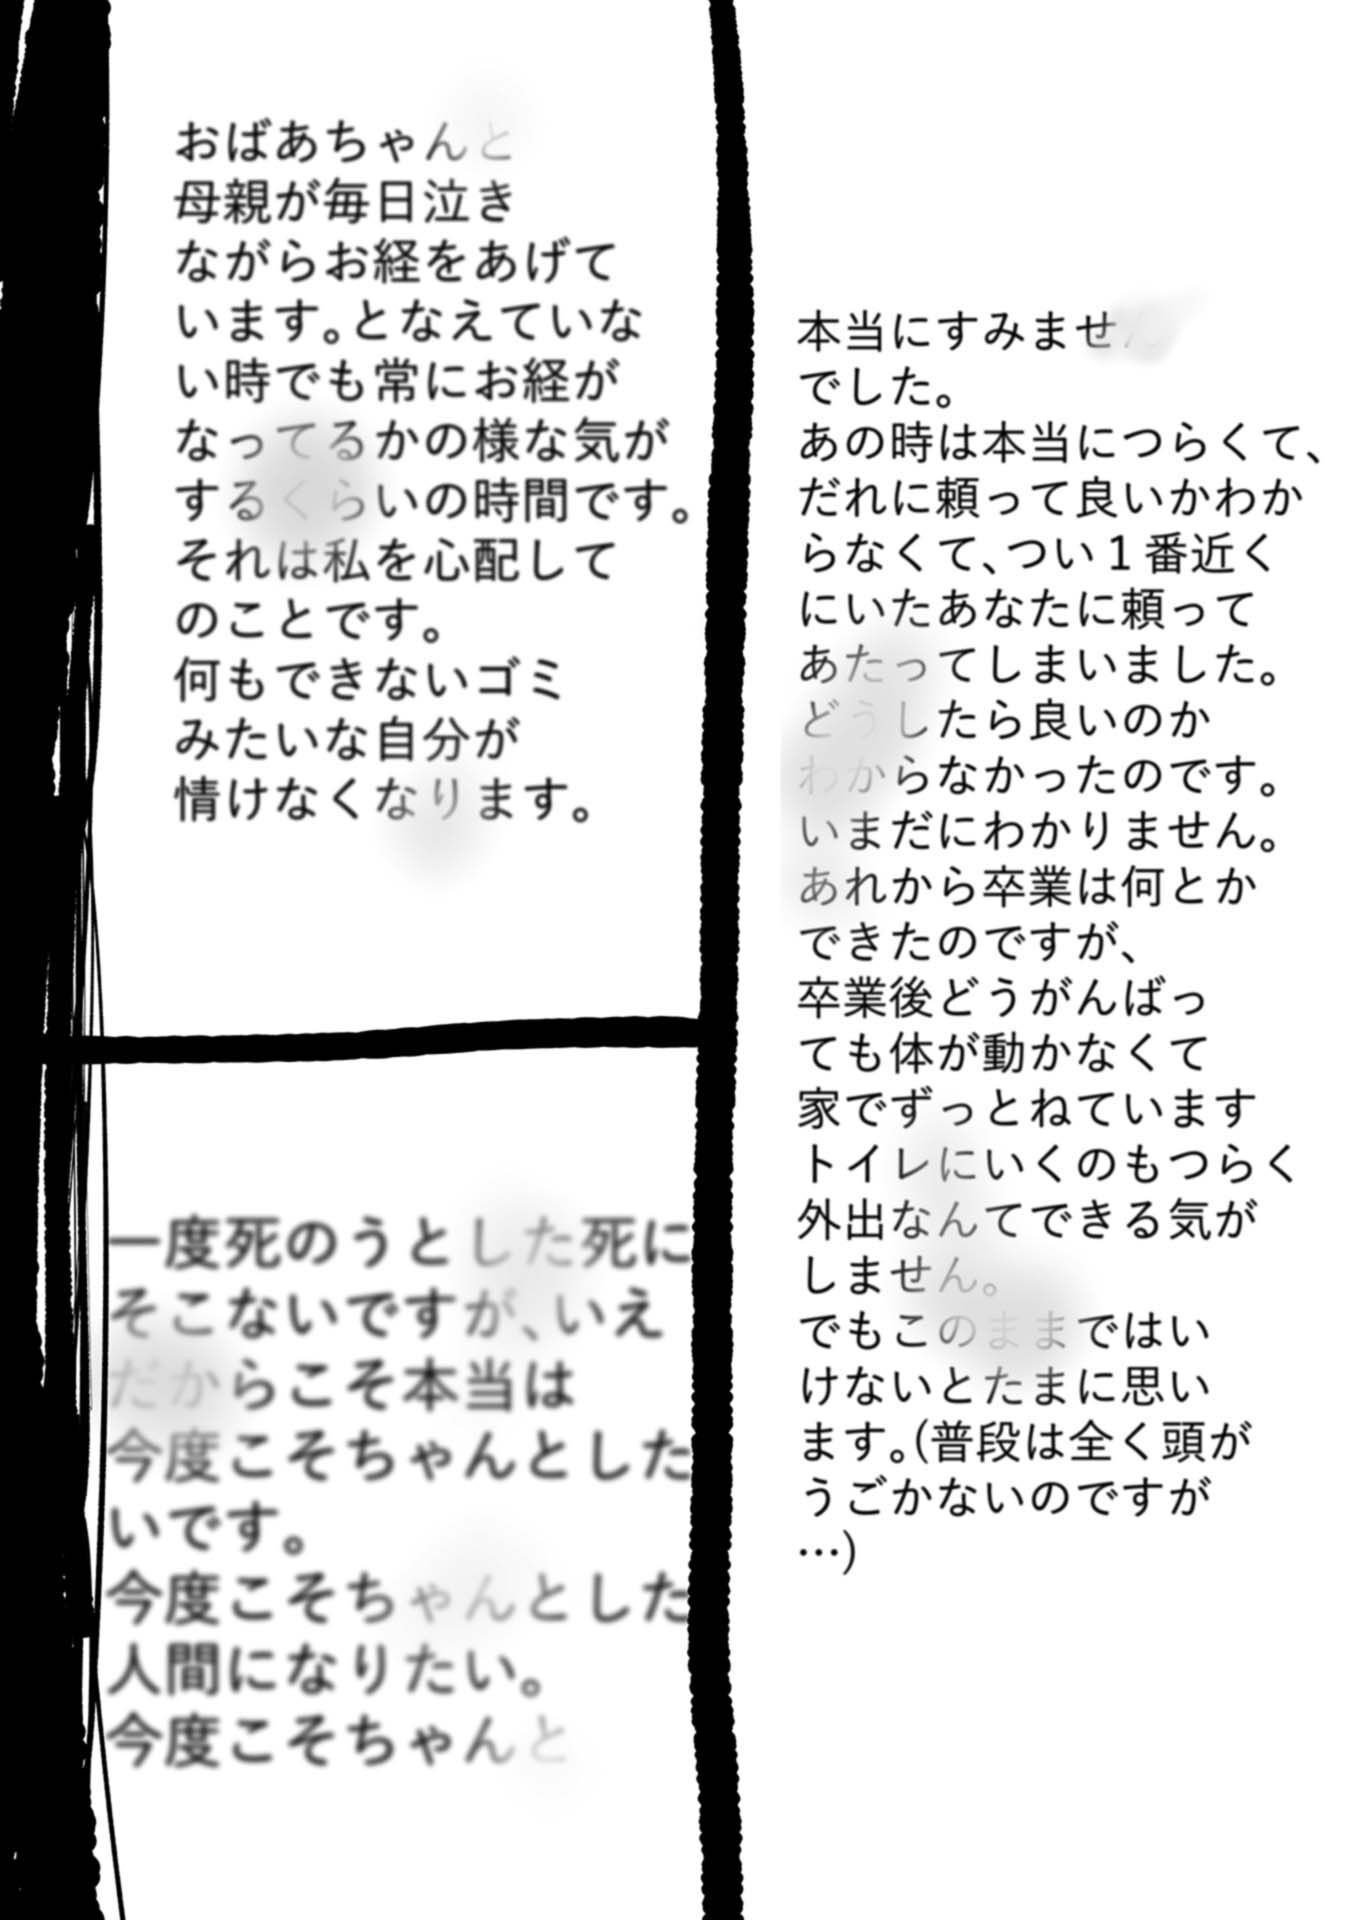 本当にすみません
でした。
あの時は本当につらくて、
だれに頼って良いかわか
らなくて、つい1番近く
にいたあなたに頼って
あたってしまいました。
どうしたら良いのか
わからなかったのです。
いまだにわかりません。
あれから卒業は何とか
できたのですが、
卒業後どうがんばっ
ても体が動かなくて
家でずっとねています
トイレにいくのもつらく
外出なんてできる気が
しません。
でもこのままではい
けないとたまに思い
ます。(普段は全く頭が
うごかないのですが
…)
おばあちゃんと
母親が毎日泣き
ながらお経をあげて
います。となえていな
い時でも常にお経が
なってるかの様な気が
するくらいの時間です。
それは私を心配して
のことです。
何もできないゴミ
みたいな自分が
情けなくなります。
一度死のうとした死に
そこないですが、いえ
だからこそ本当は
今度こそちゃんとした
いです。
今度こそちゃんとした
人間になりたい。
今度こそちゃんと